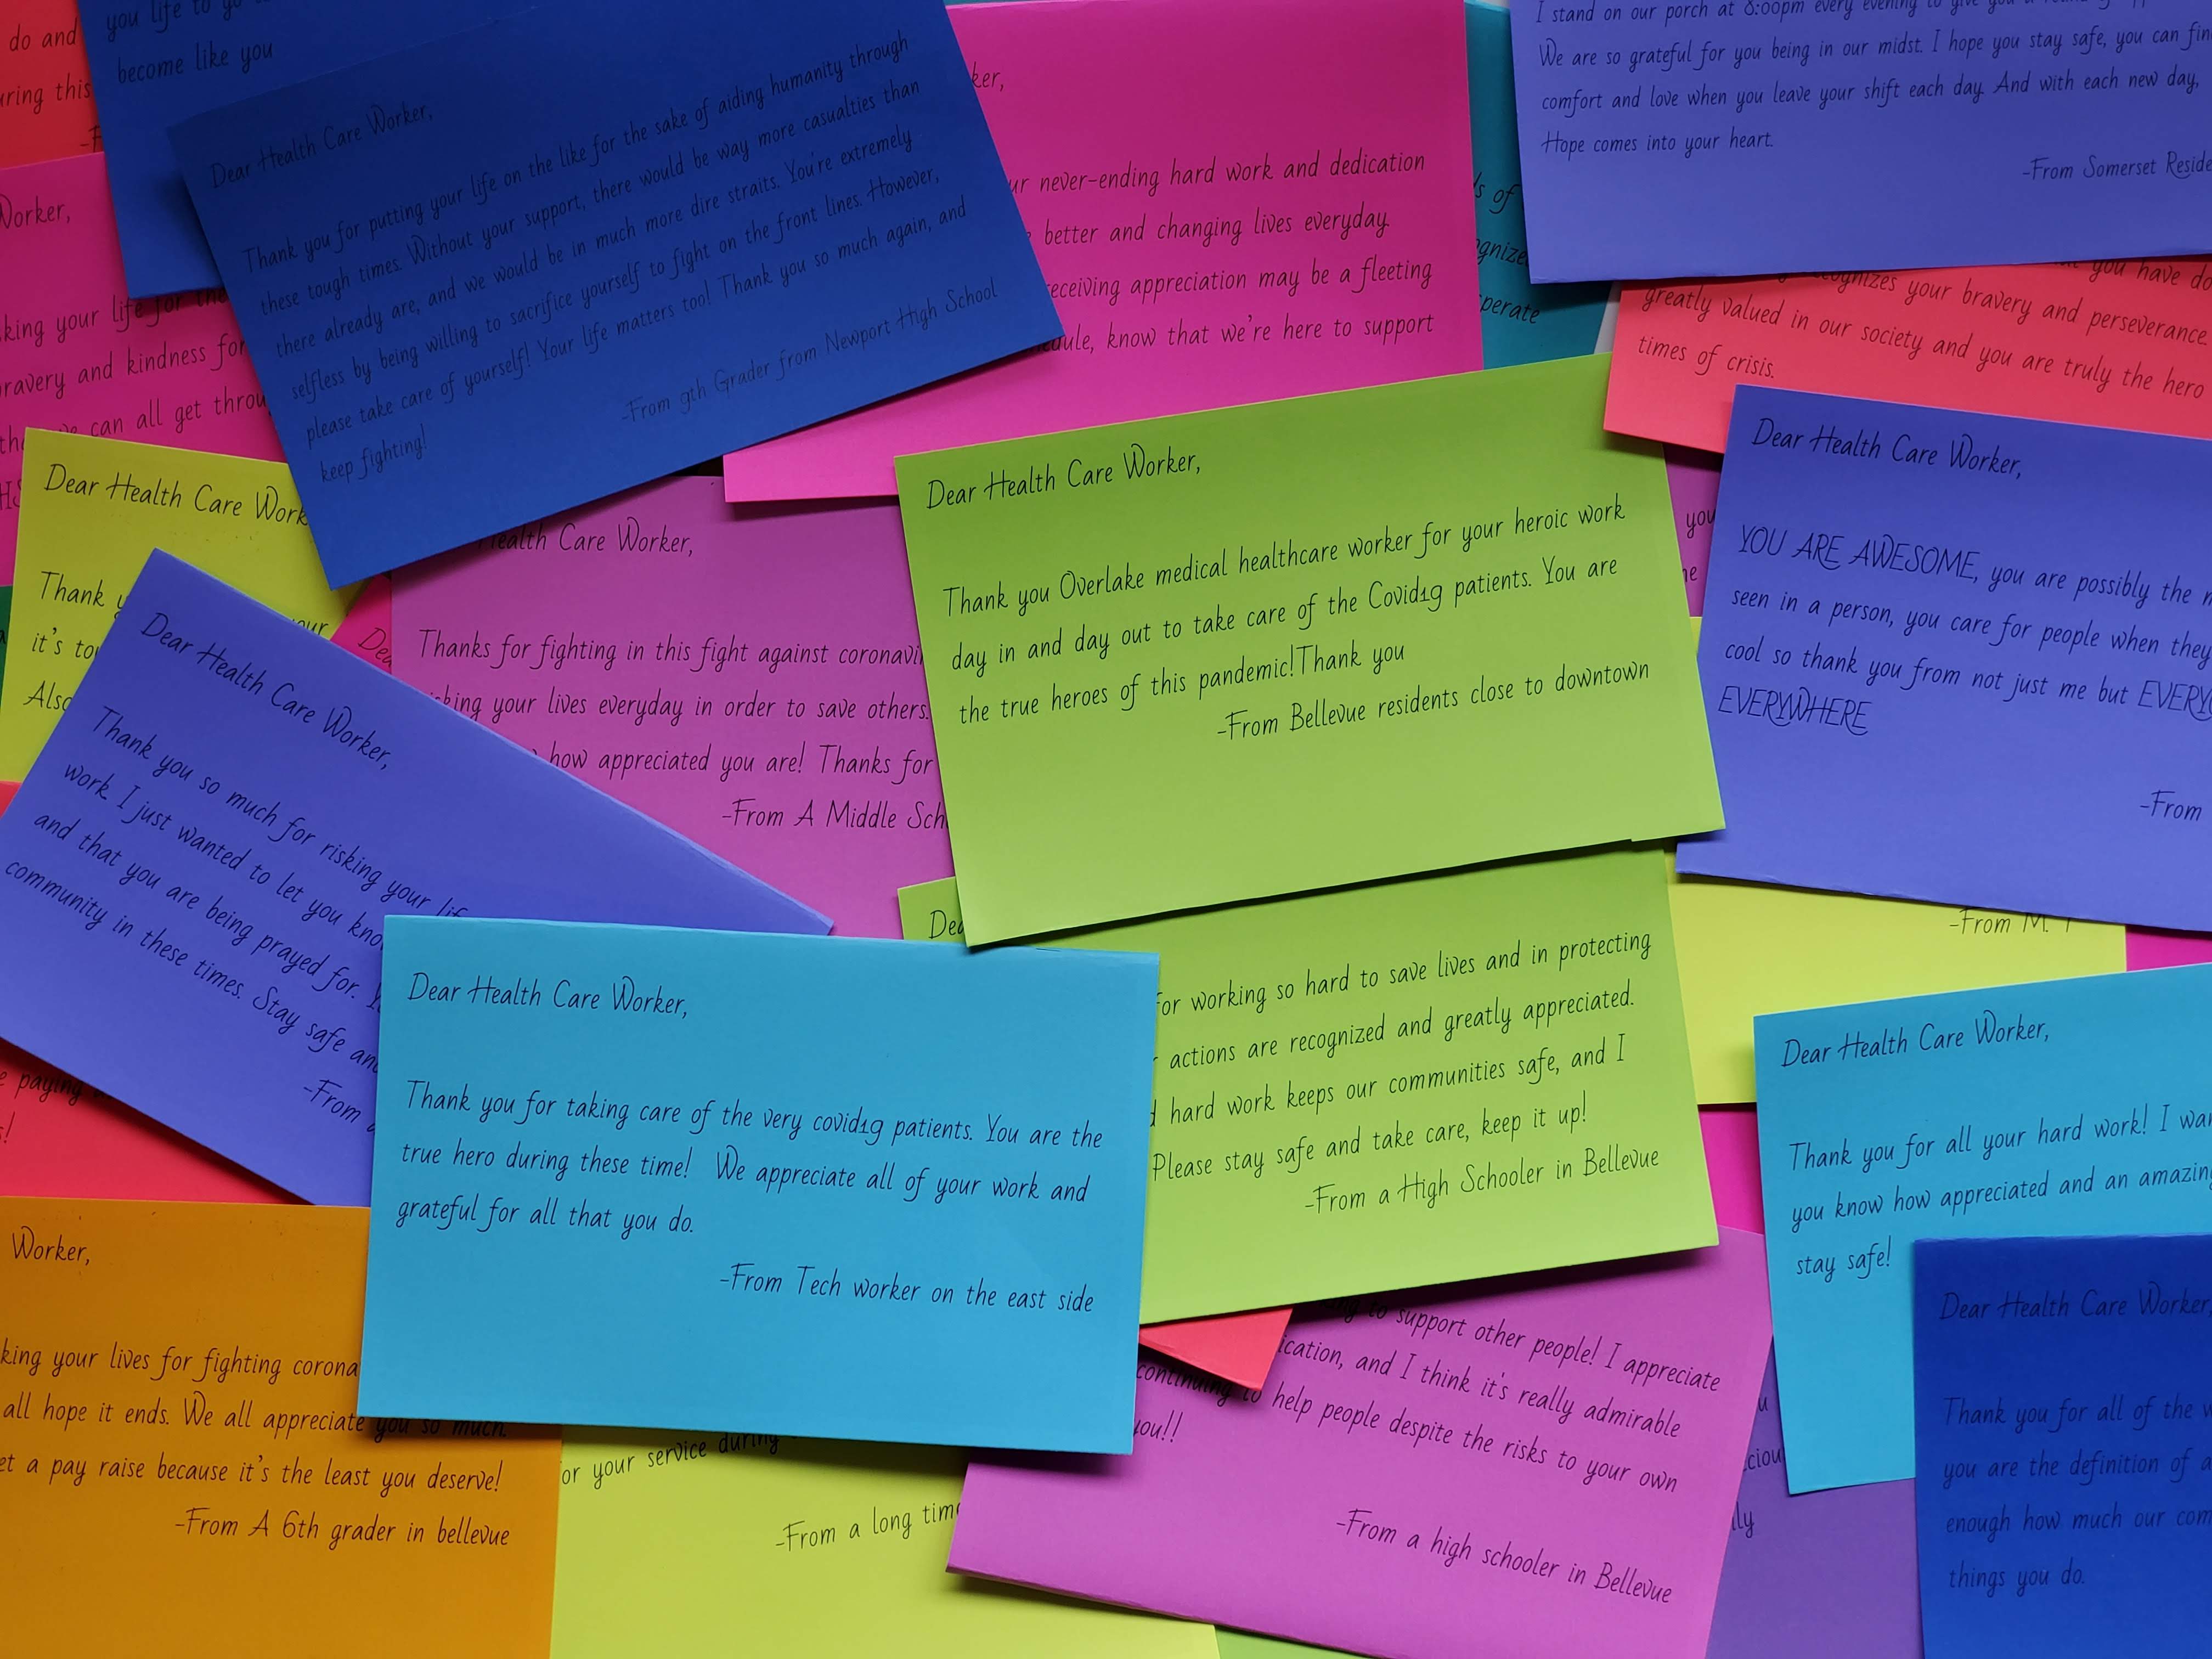 do and
uring this
you life to go to
become like you
Dear Health Care Worker,
Thank you for putting your life on the like for the sake of aiding humanity through
these tough times. Without your support, there would be way more casualties than
there already are, and we would be in much more dire straits. You're extremely
selfless by being willing to sacrifice yourself to fight on the front lines. However,
please take care of yourself! Your life matters too! Thank you so much again, and
keep fighting!
-From 9th Grader from Newport High School
ker,
ur never-ending hard work and dedication
better and changing lives everyday.
eceiving appreciation may be a fleeting
edule, know that we're here to support
s of
gnize
perate
I stand on our porch at 8:00pm every evening to give you a
We are so grateful for you being in our midst. I hope you stay safe, you can fin
comfort and love when you leave your shift each day. And with each new day,
Hope comes into your heart.
-From Somerset Reside
you have do
ognizes your bravery and perseverance.
greatly valued in our society and you are truly the hero
times of crisis.
Worker,
king your life for the
ravery and kindness for
can all get throu
Dear Health Care Work
Thank y
our
it's to
Also
Dea
Health Care Worker,
Thanks for fighting in this fight against coronavi
king your lives everyday in order to save others.
how appreciated you are! Thanks for
-From A Middle Sch
Dear Health Care Worker,
Thank you Overlake medical healthcare worker for your heroic work
day in and day out to take care of the Covid19 patients. You are
the true heroes of this pandemic!Thank you
-From Bellevue residents close to downtown
you
ne
Dear Health Care Worker,
YOU ARE AWESOME, you are possibly the m
seen in a person, you care for people when they
cool so thank you from not just me but EVERYO
EVERYWHERE
-From
-From M.
Dear Health Care Worker,
Thank you so much for risking your lif
work. I just wanted to let you kno
and that you are being prayed for. Y
community in these times. Stay safe and
-From a
e paying
s!
Dear Health Care Worker,
Thank you for taking care of the very covid19 patients. You are the
true hero during these time! We appreciate all of your work and
grateful for all that you do.
-From Tech worker on the east side
Dea
for working so hard to save lives and in protecting
r actions are recognized and greatly appreciated.
d hard work keeps our communities safe, and I
Please stay safe and take care, keep it up!
-From a High Schooler in Bellevue
Dear Health Care Worker,
Thank you for all your hard work! I wan
you know how appreciated and an amazing
stay safe!
Worker,
king your lives for fighting corona
all hope it ends. We all appreciate you so much.
et a pay raise because it's the least you deserve!
-From A 6th grader in bellevue
or your service during
-From a long time
to support other people! I appreciate
ication, and I think it's really admirable
continuing to help people despite the risks to your own
you!!
-From a high schooler in Bellevue
u
ciou
lly
Dear Health Care Worker,
Thank you for all of the w
you are the definition of a
enough how much our com
things you do.